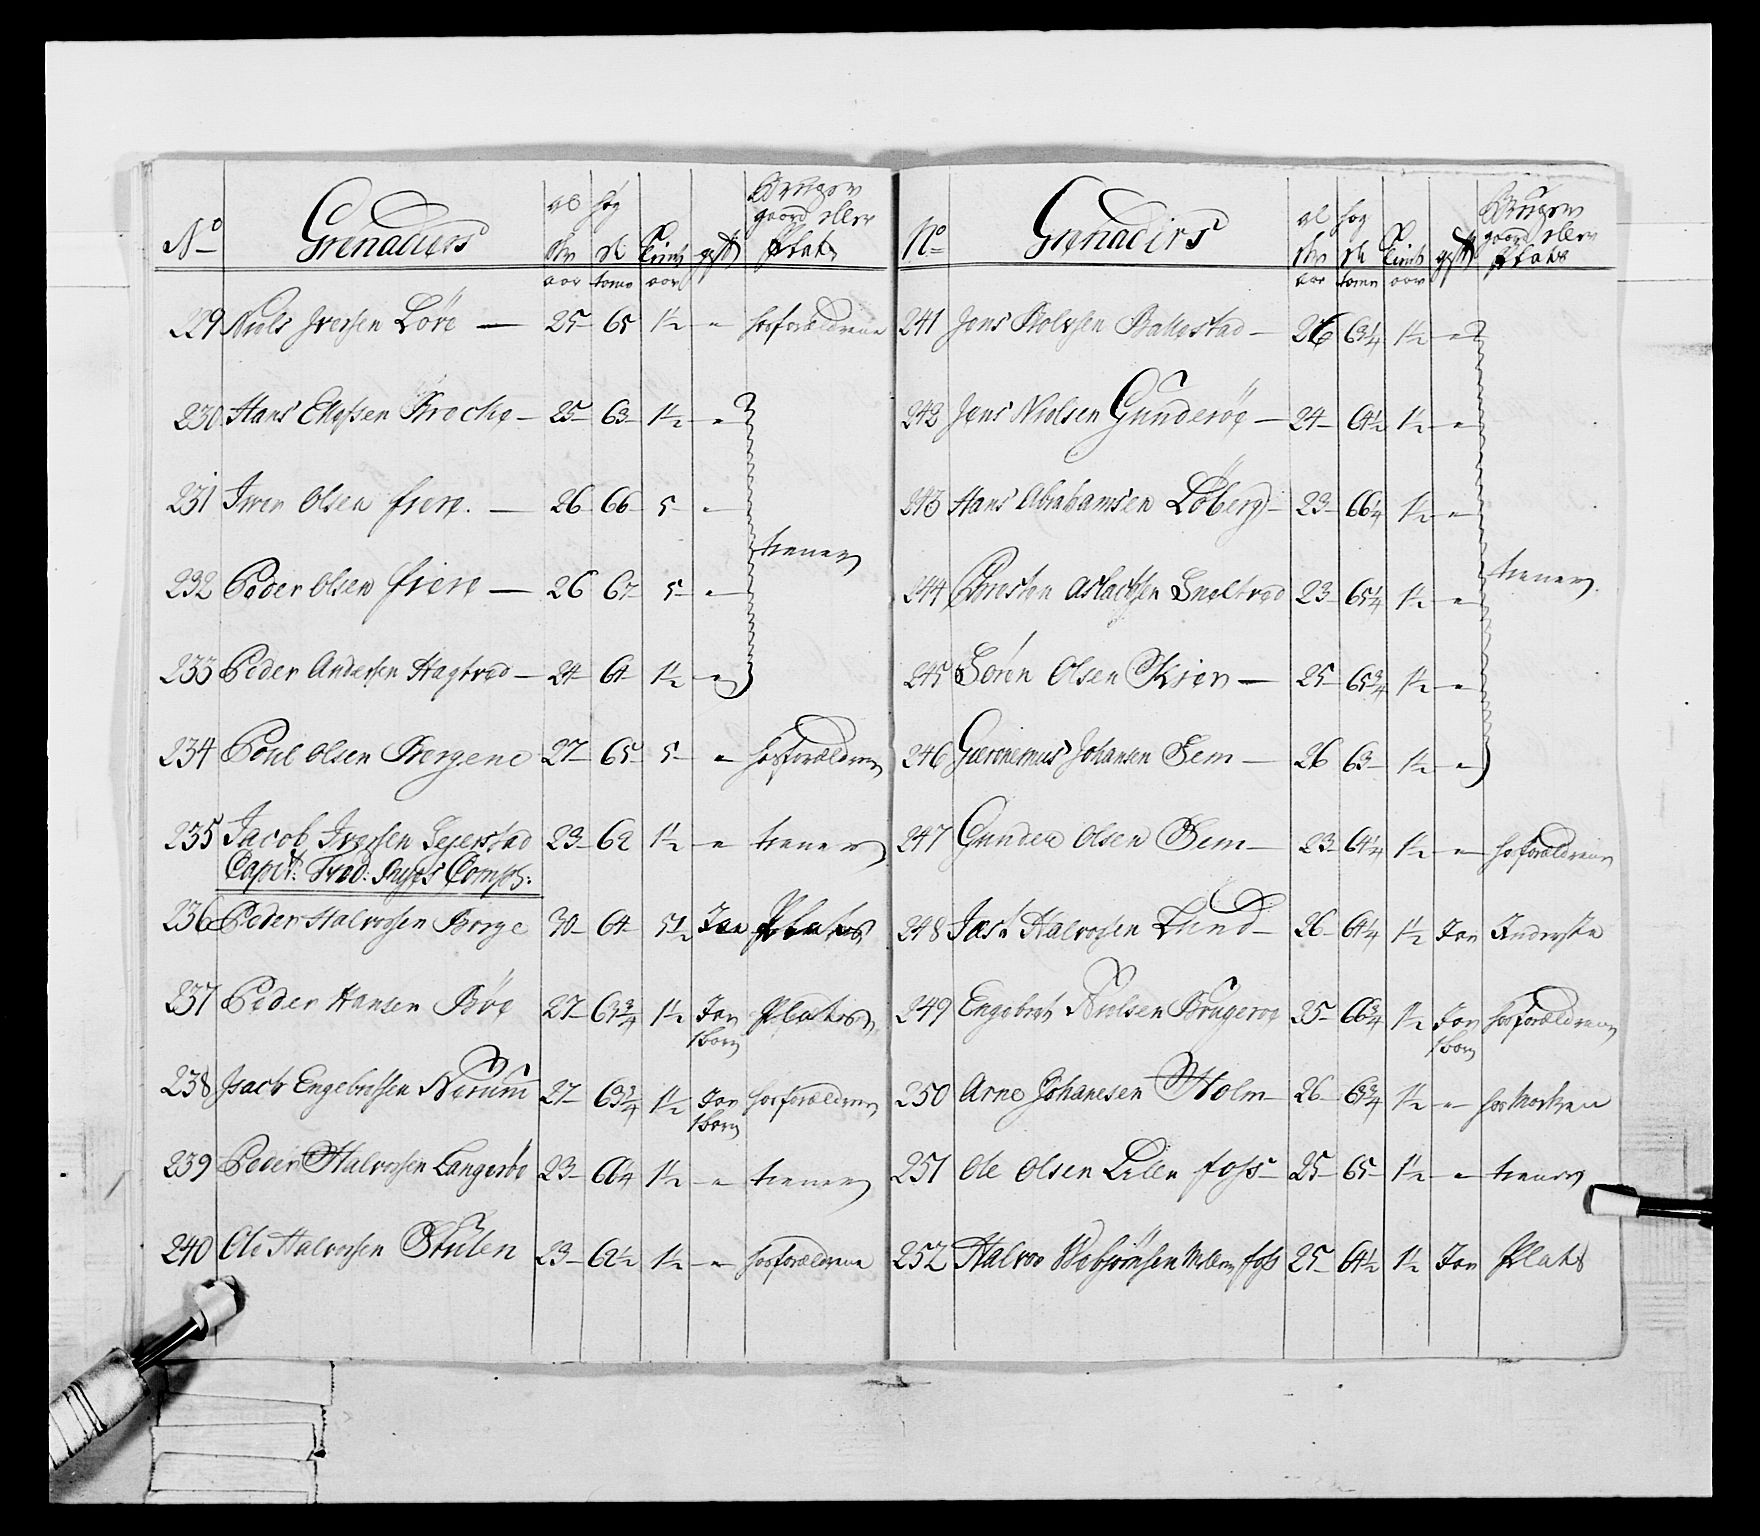 No Grenadiers al der aar høg de tome tient aar gift Bruger gaard eller Plats
229 Niels Iversen Löve — 25 65 1½ " hos forældrene
230 Hans Ellefsen — 25 63 1½ "
231 Iver Olsen friere. — 26 66 5 "
tiener
232 Peder Olsen friere — 26 67 5 "
233 Peder Andersen Hagtved — 24 64 1½ "
234 Poul Olsen Bergene 27 65 5 " hos forældrene
235 Jacob Iversen Sejerstad 23 62 1½ " tiener
Capit: Fred: Comp:
236 Peder Halvorsen Borge 30 64 5½ Ja Plats
237 Peder Hansen Böe 27 63¾ 1½ Ja 1 barn Plats
238 Isach Engebretsen Nerum 27 63¾ 1½ Ja 1 barn hos forældrene
239 Peder Halvorsen Langeröe 23 1½ " tiener
240 Ole Halvorsen Stulen 23 62½ 1½ " hos forældrene
No Grenadiers al der aar høg de tome tient aar gift Bruger gaard eller Plats
241 Jens Rolfsen Ballestad — 26 63¼ 1½ "
242 Jens Nielsen Gunderöe — 24 64½ 1½ "
243 Hans Abrahamsen Löberg — 23 66¼ 1½ "
tiener
244 Christen Aslachsen Sneltved 23 65¼ 1½ "
245 Sören Olsen Kiær — 25 65¾ 1½ "
246 Gieronemus Johansen Sem — 26 63 1½ "
247 Gunder Olsen Sem — 23 64¼ 1½ " hos forældrene
248 Halvorsen Lund — 26 64¼ 1½ Ja
249 Engebret Nielsen 25 66¾ 1½ Ja 1 barn hos forældrene
250 Arne Johanesen Holm — 26 63¾ 1½ " hos Moderen
251 Ole Olsen Lille foss — 25 65 1½ " tiener
252 Halvor foss 25 64½ 1½ Ja Plats